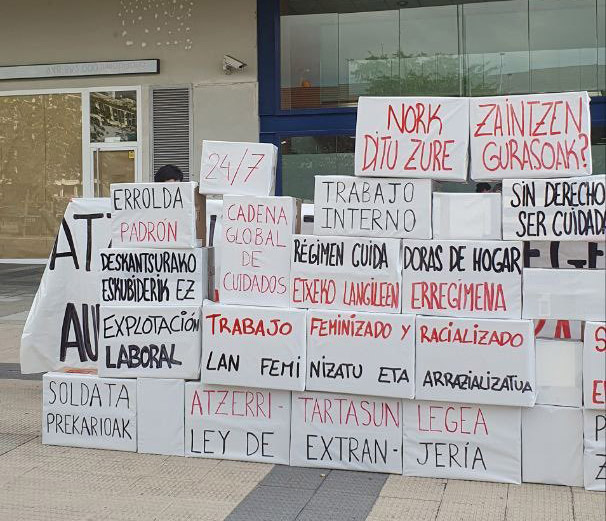 NORK ZAINTZEN
DITU ZURE GURASOAK?
24/7
TRABAJO
INTERNO
SIN DERECHO
SER CUIDADA
ERROLDA
PADRÓN
CADENA
GLOBAL
DE
CUIDADOS
DESKANTSURAKO
ESKUBIDERIK EZ
RÉGIMEN CUIDADORAS DE HOGAR
ETXEKO LANGILEEN ERREGIMENA
EXPLOTACIÓN
LABORAL
TRABAJO FEMINIZADO Y RACIALIZADO
LAN FEMINIZATU ETA ARRAZIALIZATUA
SOLDATA
PREKARIOAK
ATZERRI-TARTASUN LEGEA
LEY DE EXTRAN-JERÍA
AT
AU